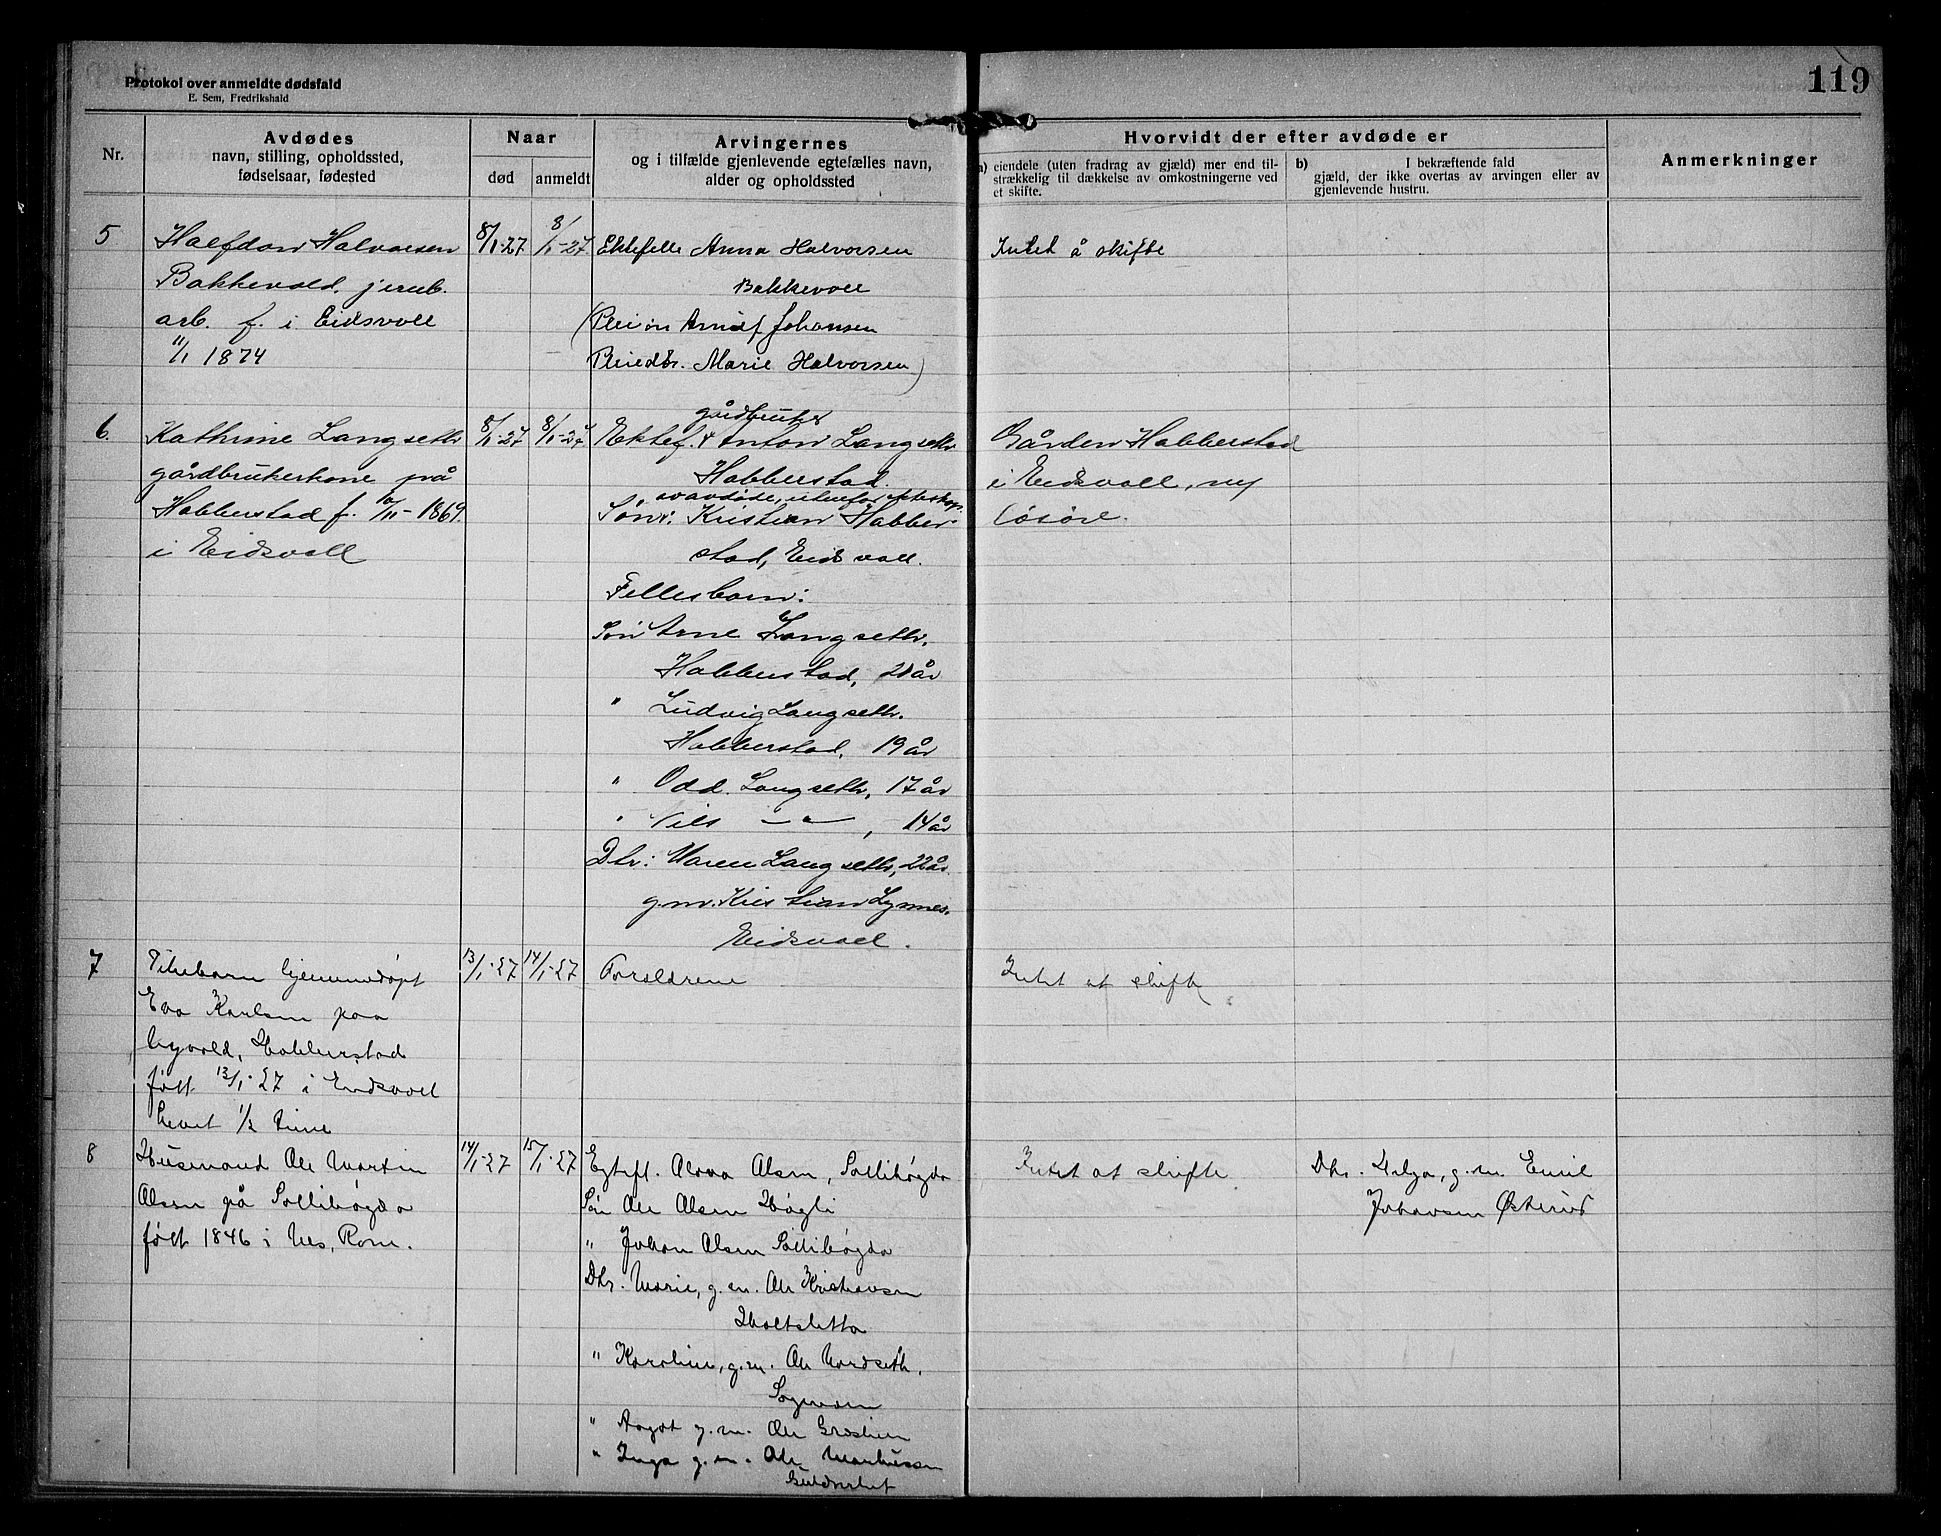 Protokol over anmeldte dødsfald
E. Sem, Fredrikshald
119
Nr.
Avdødes
navn, stilling, opholdssted,
fødselsaar, fødested
Naar
død
anmeldt
Arvingernes
og i tilfælde gjenlevende egtefælles navn,
alder og opholdssted
Hvorvidt der efter avdøde er
a) eiendele (uten fradrag av gjæld) mer end til-
strækkelig til dækkelse av omkostningerne ved
et skifte.
b) I bekræftende fald
gjæld, der ikke overtas av arvingen eller av
gjenlevende hustru.
Anmerkninger
5
Halfdan Halvorsen
Bakkevold, jernb.
arb. f. i Eidsvoll
11/1 1874
8/1-27
8/1-27
Ektefelle Anna Halvorsen
Bakkevoll
(Pleiesøn Arnulf Johansen
Pleiedtr. Marie Halvorsen)
Intet å skifte
6.
Kathrine Langseth
gårdbrukerkone på
Habberstad f. 10/11-1869.
i Eidsvoll
8/1-27
8/1-27.
gårdbruker
Ektef. Anton Langseth
Habberstad.
av avdøde, utenfor ekteskap.
Søn: Kristian Habber-
stad, Eidsvoll.
Fellesbarn:
Søn Arne Langseth,
Habberstad, 21 år
" Ludvig Langseth.
Habberstad, 19 år
" Odd Langseth, 17 år
" Nils —"—, 14 år
Dtr: Maren Langseth, 22 år.
g.m. Kristian Lynnes.
Eidsvoll.
Gården Habberstad
i Eidsvoll, og
løsøre.
7
Pikebarn hjemmedøpt
Eva Karlsen paa
Nyvold, Habberstad
født 13/1-27 i Eidsvoll
Levet 1/2 time
13/1-27
14/1-27
Forældrene
Intet at skifte
8
Husmand Ole Martin
Olsen på Sollibøgda
født 1846 i Nes, Rom.
14/1-27
15/1-27
Egtef. Olova Olsen, Sollibøgda
Søn Ole Olsen Høgli
" Johan Olsen Sollibøgda
Dtr. Marie, g.m. Ole Kristiansen
Holtsletta
" Karoline, g.m. Ole Nordseth,
" Aagot g.m. Ole
" Inga g.m. Ole Markussen
Intet at skifte
Dtr. Helga, g.m. Emil
Johansen Østerud